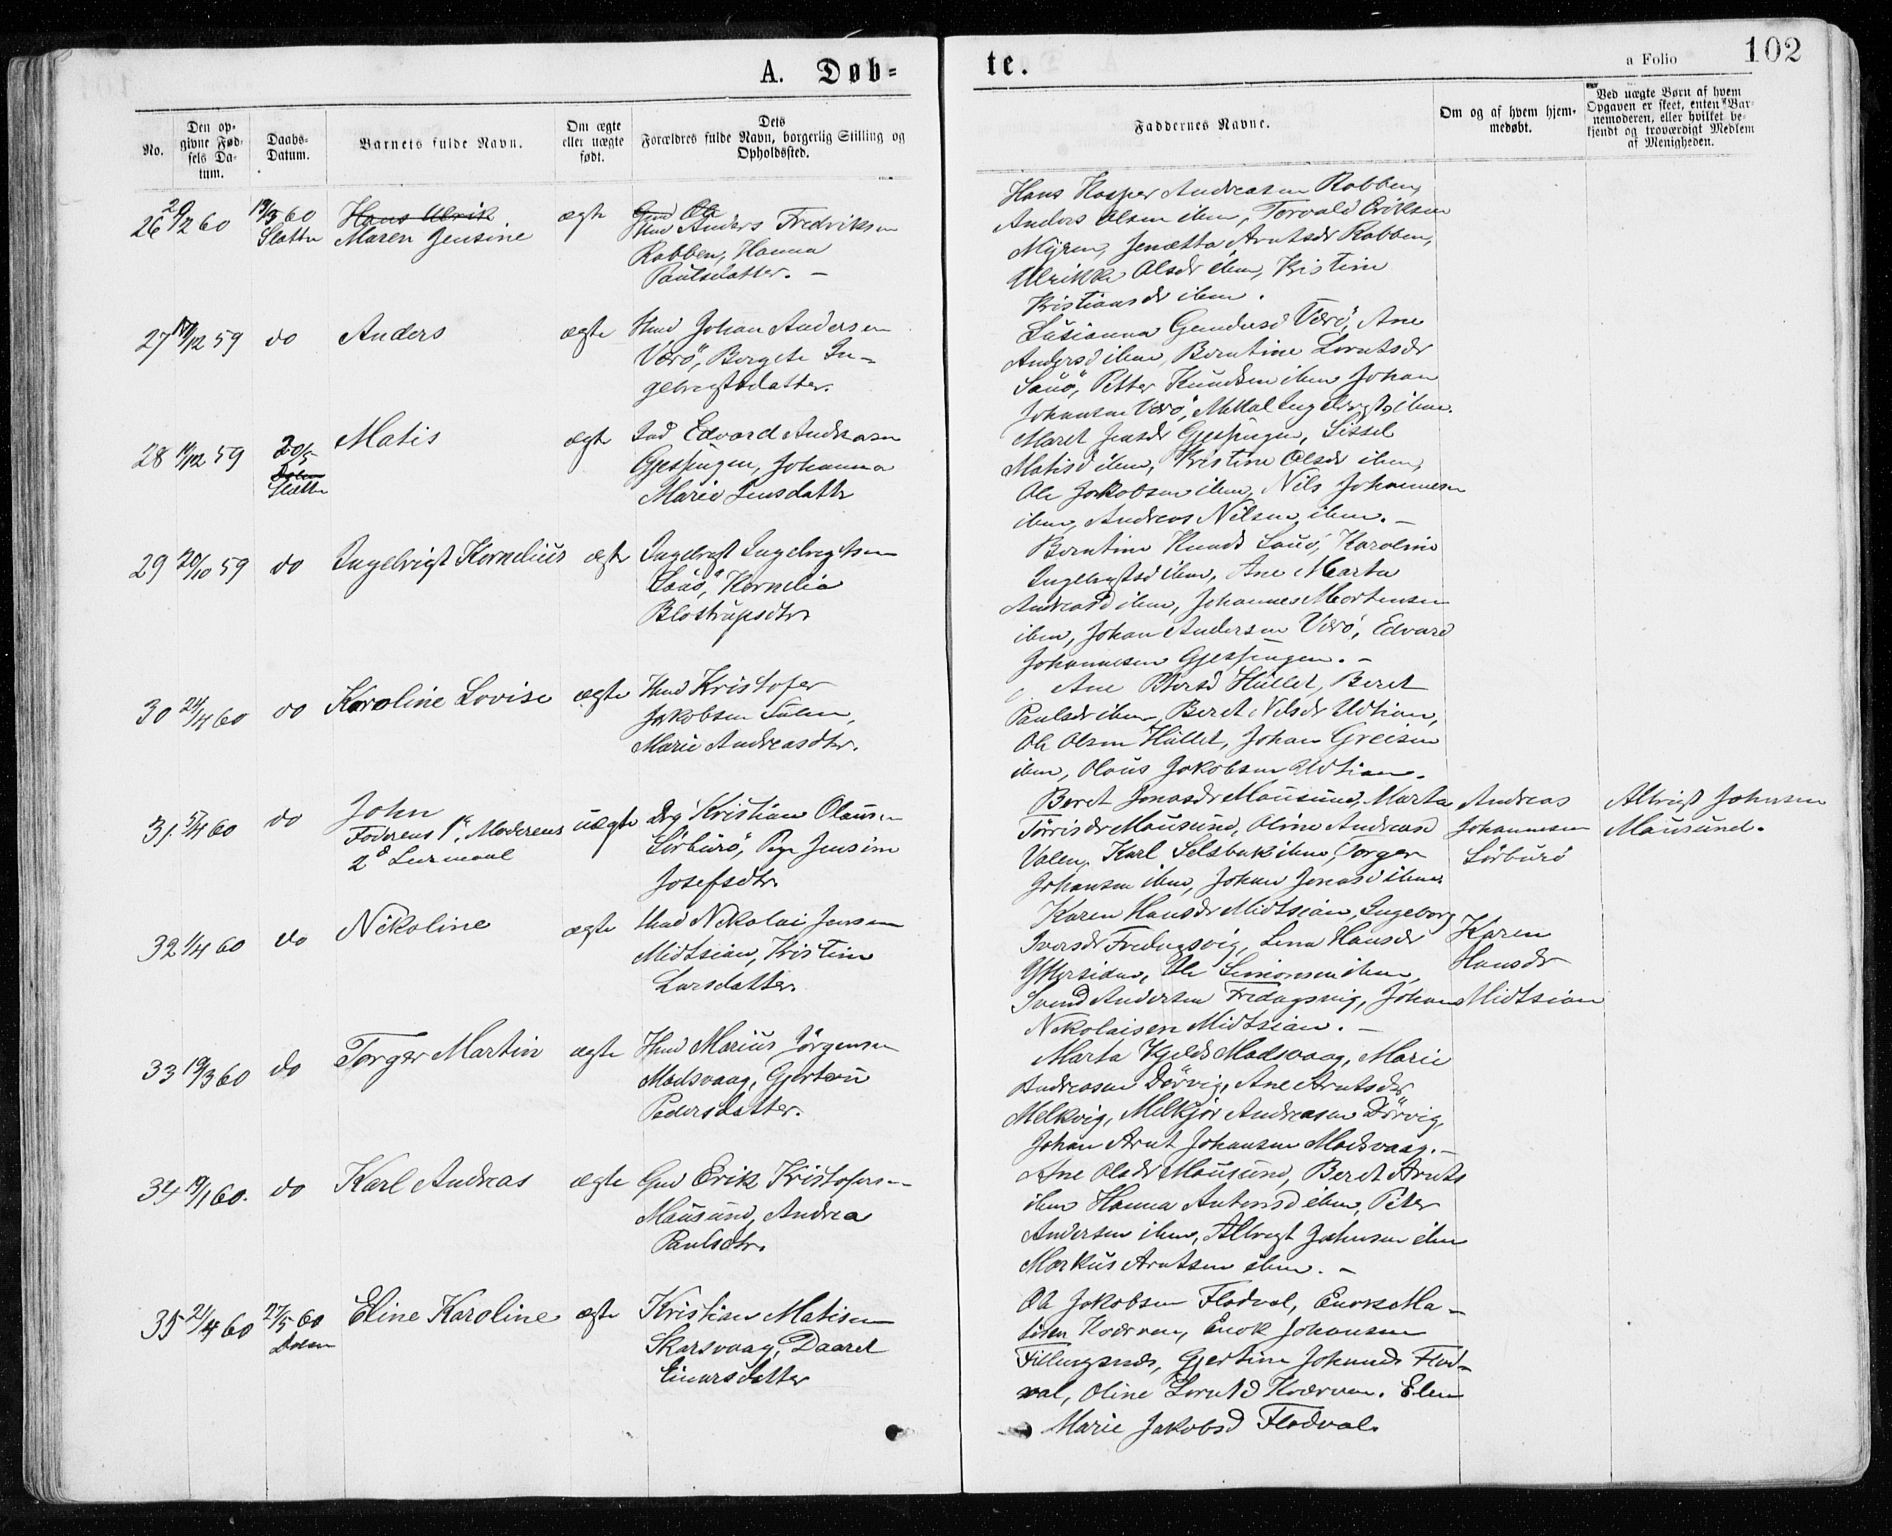 A. Døb-
te.
a Folio
102
No.
Den op-
givne Fød-
sels Da-
tum.
Daabs-
Datum.
Barnets fulde Navn.
Om ægte
eller uægte
født.
Dets
Forældres fulde Navn, borgerlig Stilling og
Opholdssted.
Faddernes Navne.
Om og af hvem hjem-
medøbt.
Ved uægte Børn af hvem
Opgaven er skeet, enten Bar-
nemoderen, eller hvilket be-
kjendt og troværdigt Medlem
af Menigheden.
26 60
60
Slettn
Hans Ulrik
Maren Jensine
ægte
Gmd Ole
Hmd Anders Fredriksen
Robben, Hanna
Paulsdatter. -
Hans Kasper Andreasen Robben,
Anders Olsen ibm, Torvald Eriksen
Myren, Jenætta Arntsdr Robben,
Ulrikke Olsdr ibm, Kristine
Kristiansdr ibm.
27 12 59
do
Anders
ægte
Hmd Johan Andersen
Værö, Bergete In-
gebrigtsdatter.
Susianna Gundersd Værö, Ane
Andersd ibm, Berntine Lorntsdr
Sauö, Petter Knudsen ibm Johan
Johansen Værö, Mikal Ingebrigts ibm.
28 12 59
20/5
Slettn
Matis
ægte
Ind Edvard Andreasen
Gjessingen, Johanna
Marie Jensdattr
Maret Jensdr Gjessingen, Sissel
Matisd ibm, Kristine Olsdr ibm,
Ole Jakobsen ibm, Nils Johannesen
ibm, Andreas Nilsen ibm. -
29 20/10 59
do
Ingebrigt Kornelius
ægte
Ingebrigt Ingebrigtsen
Sauö, Kornelia
Blostrupsdtr
Berntine Knuds Sauö, Karoline
Ingebrigtsd ibm, Ane Marta
Andreasd ibm, Johannes Mortensen
ibm, Johan Andersen Værö, Edvard
Johannesen Gjessingen. -
30 24/4 60
do
Karoline Lovise
ægte
Hmd Kristofer
Jakobsen Sulen,
Marie Andreasdtr.
Ane Hallet, Beret
Paulsdr ibm, Beret Nilsdr Udtian,
Ole Olsen Hallet, Johan Greisen
ibm, Olaus Jakobsen Udtian.
31 5/4 60
do
John
Faderens 1e, Moderens
2d Leiermaal
uægte
Drg Kristian Olausen
Sörburö, Pige Jensine
Josefsdtr.
Beret Jonasdr Mausund, Marta
Törrisdr Mausund, Oline Andreasd
Valen, Karl Selsbak ibm, Torger
Johansen ibm, Johan Jonasd ibm
Andreas
Johannesen
Sörburö
Albrigt Johnsen
Mausund.
32 1/4 60
do
Nikoline
ægte
Hmd Nikolai Jensen
Midtsian, Kristine
Larsdatter
Karen Hansdr Midtsian, Ingeborg
Iversdr Fredagsvig, Lena Hansdr
Yttersian, Ole Simonsen ibm,
Svend Andersen Fredagsvig, Johan
Nikolaisen Midtsian. -
Karen
Hansdr
Midtsian
33 19/3 60
do
Torger Martin
ægte
Hmd Marius Jörgensen
Madsvaag, Gjertru
Pedersdatter.
Marta Kjelds Madsvaag, Marie
Andreasen Dörvig, Ane Arntsdr
Melkvig, Melkjor Andreasen Dörvig,
Johan Arnt Johansen Madsvaag. -
34 19/1 60.
do
Karl Andreas
ægte
Gmd Erik Kristofers-
Mausund, Andrea
Paulsdtr.
Ane Olsdr Mausund, Beret Arnts
ibm Hanna Antonsd ibm, Peter
Andersen ibm, Albrigt Johnsen ibm
Markus Arntsen ibm. -
35 21/4 60
27/5 60
Eline Karoline
ægte
Kristian Matisen
Skarsvaag, Daaret
Einarsdatter
Ole Jakobsen Fladval, Enok Ma-
tisen Kværven, Enok Johansen
Fillingsnes, Gjertine Johansd Flad-
val, Oline Lorntsd Kværven. Elen
Marie Jakobsd Fladval.